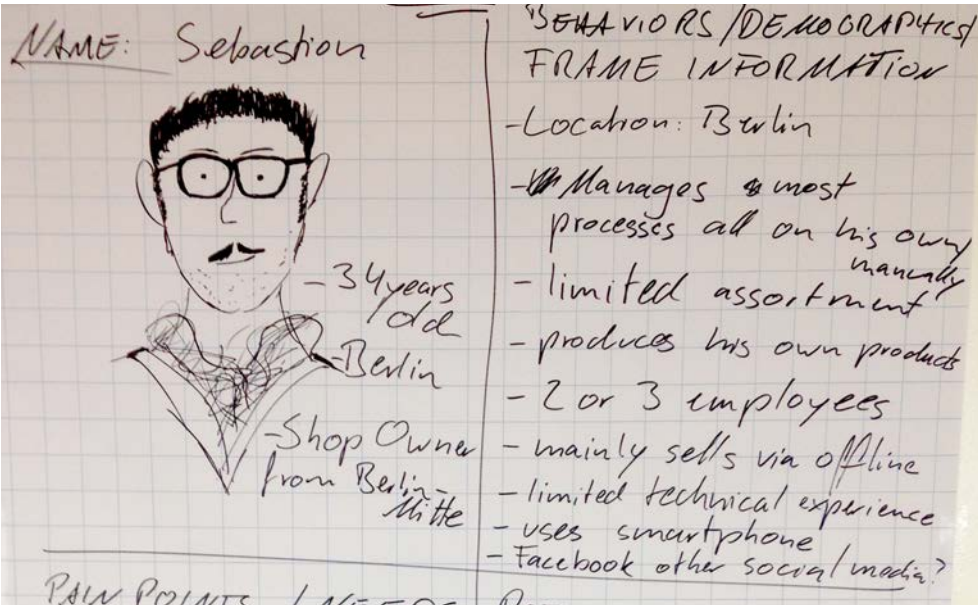 NAME: Sebastion
- 34 years
old
- Berlin
- Shop Owner
from Berlin-
Mitte
BEHAVIORS/DEMOGRAPHICS/
FRAME INFORMATION
- Location: Berlin
- Manages most
processes all on his own/
manually
- limited assortment
- produces his own products
- 2 or 3 employees
- mainly sells via offline
- limited technical experience
- uses smartphone
- Facebook other social media?
PAIN POINTS / NEEDS